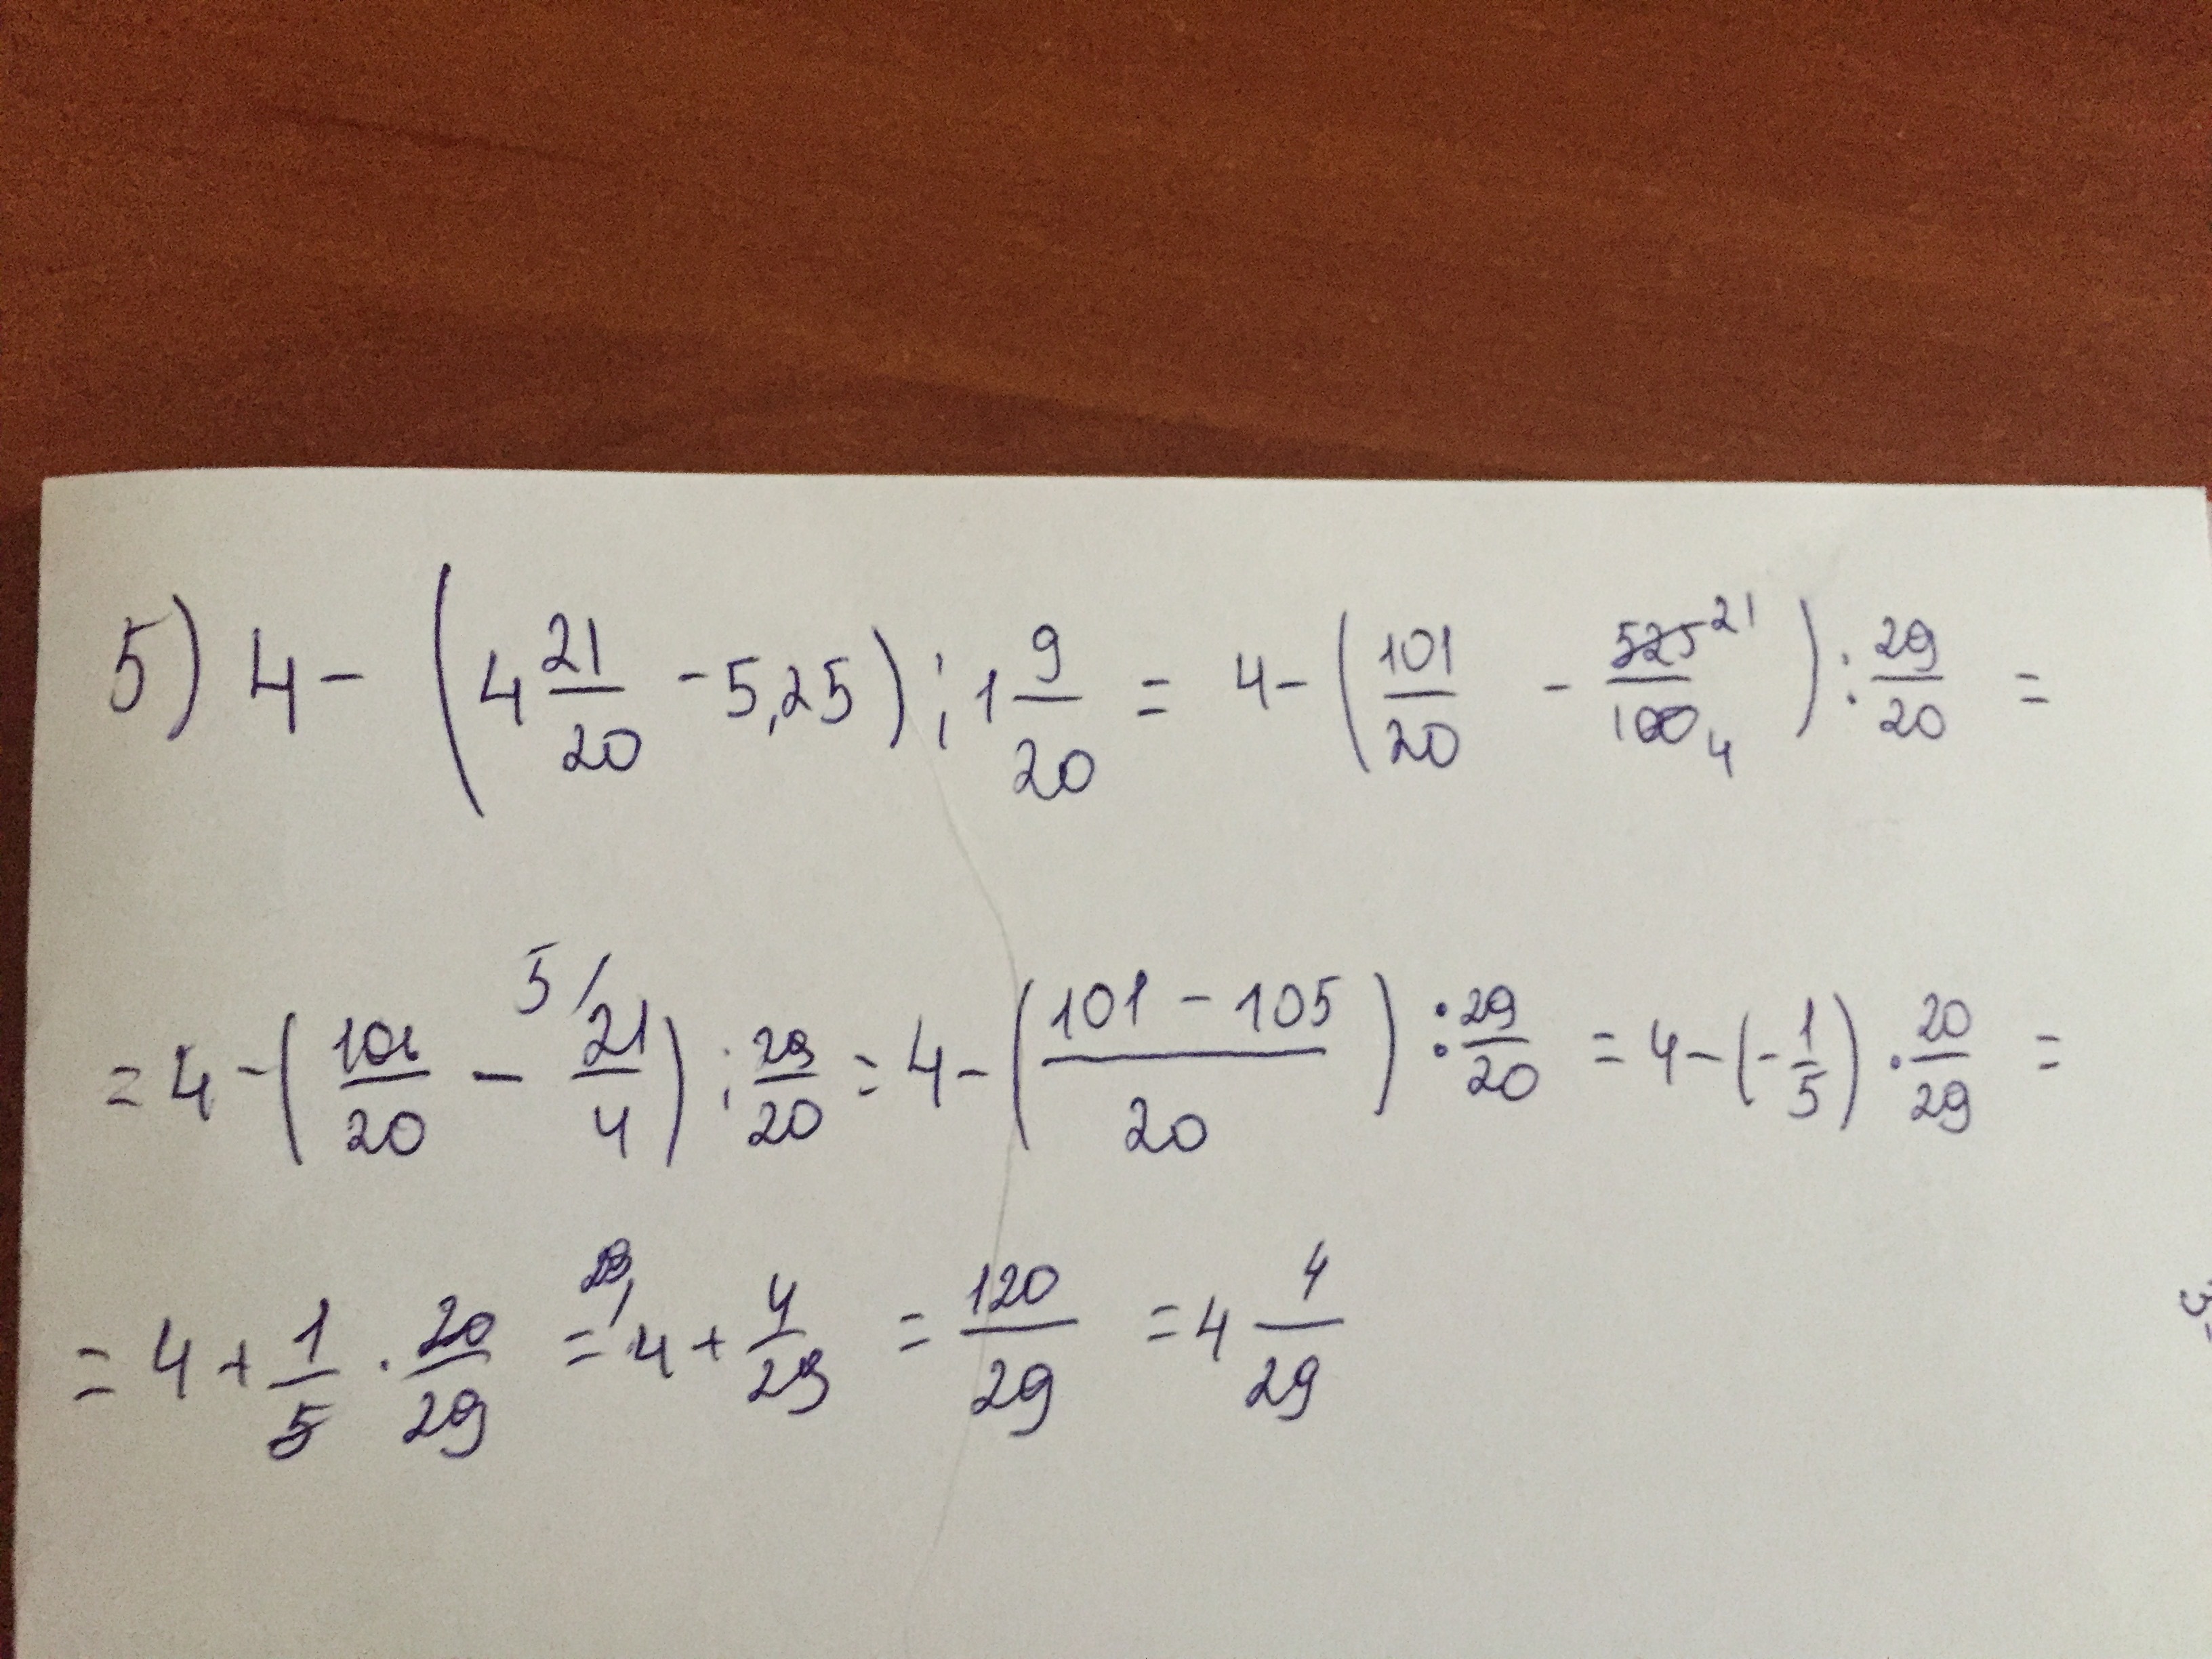 5) 4 - (4 21/20 - 5,25) : 1 9/20 = 4 - (101/20 - 525 21/100 4) : 29/20 =
= 4 - (101/20 - 5/ 21/4) : 29/20 = 4 - (101 - 105/20) : 29/20 = 4 - (-1/5) · 20/29 =
= 4 + 1/5 · 20/29 = 29/ 4 + 4/29 = 120/29 = 4 4/29